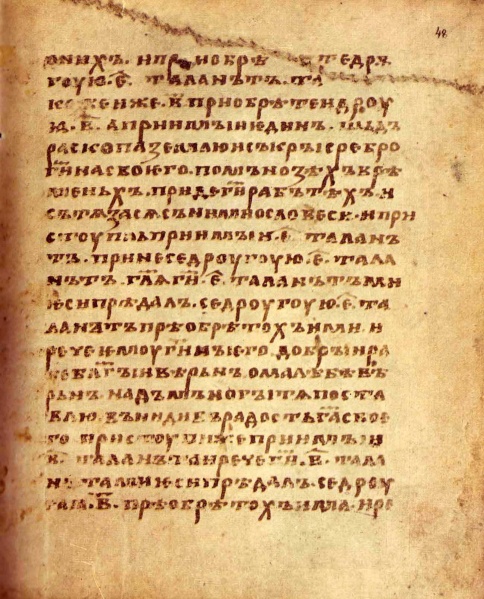 48
ѡнихъ· и приѡбрѣ ст е дрѫ
гоую·є҃· талантъ· та
кожеиже·в҃ приобрѣте и дроу
а приимъіи единъ· шьдъ
раскопа землю и съкръі сребро
г҃на своѥго· по мънозѣхъ врѣ
меньхъ· приде г҃ь рабъ тѣхъ· и
сътѧза сѧ съ ними о словесе· и при
стоупль приимъі·є҃· талан
тъ· принесе дроугоую·є҃· тала
нътъ· гл҃ѧ г҃и·є҃· талантъ ми
ѥси прѣдалъ· се дроугоую·є҃· та
ланътъ прѣобрѣтохъ ими· и
рече ѥмоу г҃ь ѥго· добръі ра
бе благъі и вѣрьнъ· о малѣ бѣ вѣ
рьнъ· надъ мъногъі тѧ поста
влю· въниди въ радость г҃а своѥ
го· пристоупи же приимъі
в҃· таланъта и рече г҃и·в҃· тала
нта ми ѥси прѣдалъ· се дроу
гаꙗ·в҃· прѣобрѣтохъ има· и ре